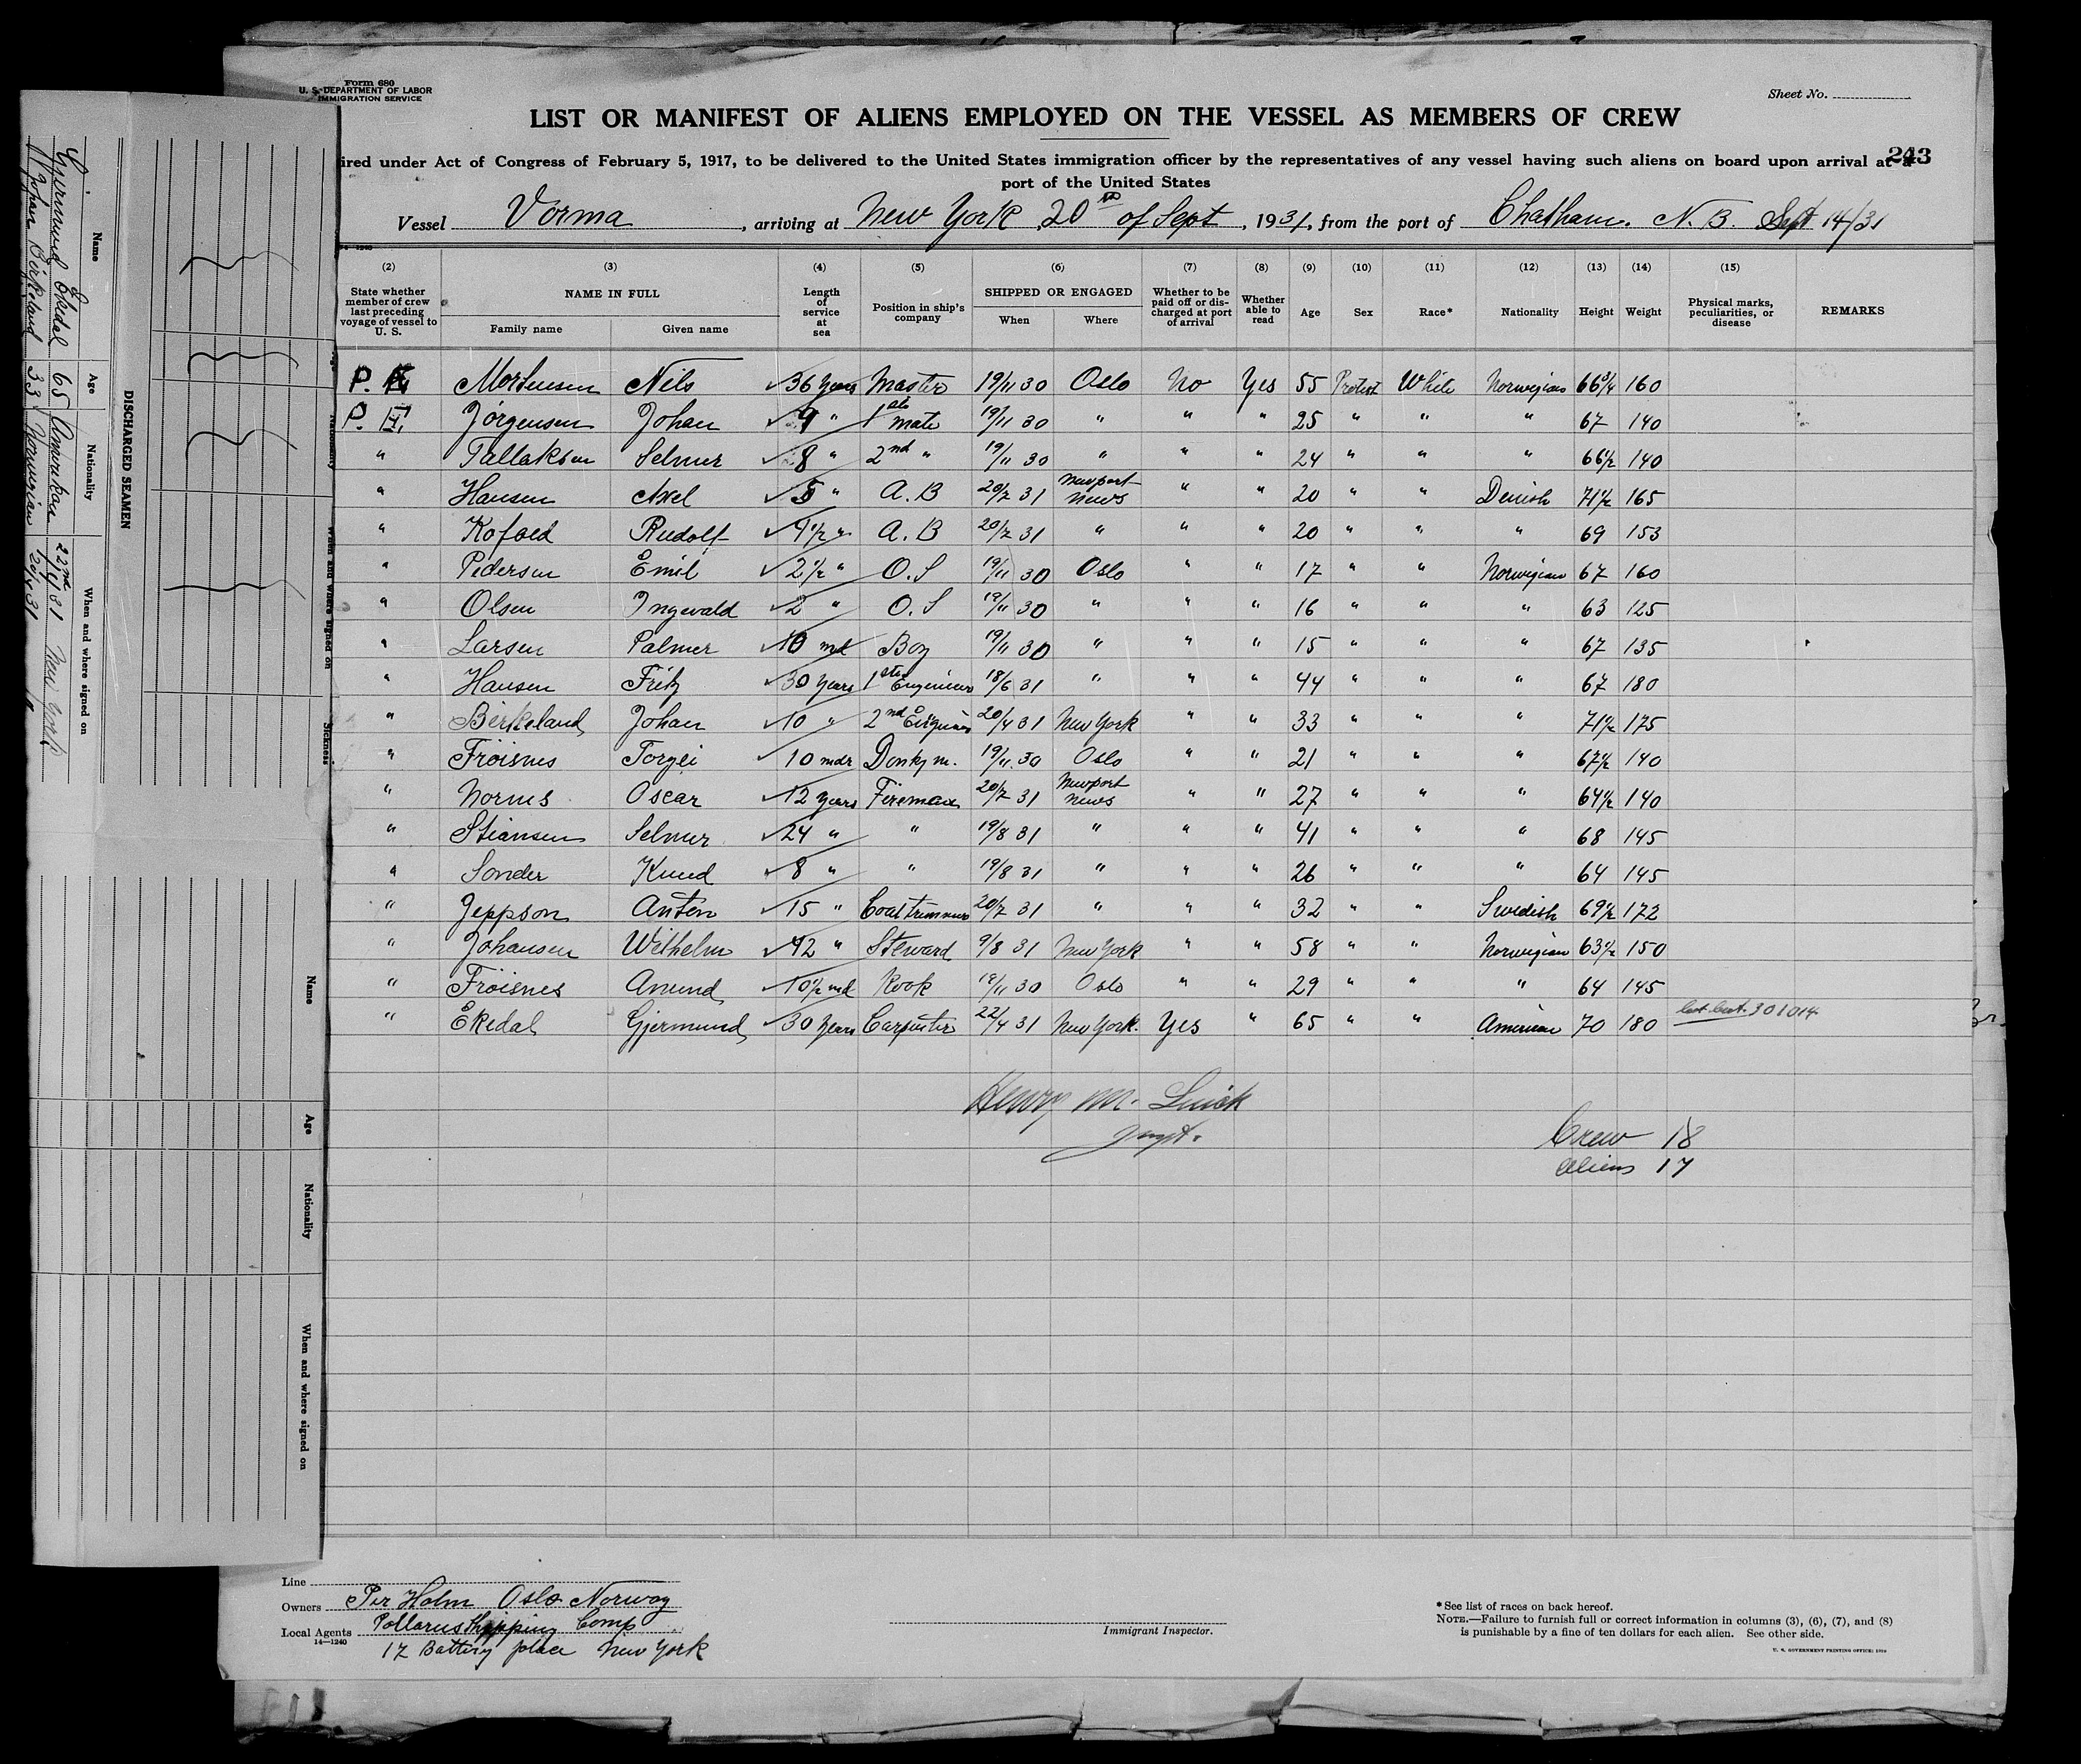 Form 680
U. S. DEPARTMENT OF LABOR
IMMIGRATION SERVICE
Sheet No.
LIST OR MANIFEST OF ALIENS EMPLOYED ON THE VESSEL AS MEMBERS OF CREW
243
ired under Act of Congress of February 5, 1917, to be delivered to the United States immigration officer by the representatives of any vessel having such aliens on board upon arrival at a
port of the United States
Vessel Vorma, arriving at New York 20th of Sept, 1931, from the port of Chatham. N.B. Sept 14/31
(2) (3) (4) (5) (6) (7) (8) (9) (10) (11) (12) (13) (14) (15)
State whether member of crew last preceding voyage of vessel to U. S. NAME IN FULL Family name Given name Length of service at sea Position in ship's company SHIPPED OR ENGAGED When Where Whether to be paid off or discharged at port of arrival Whether able to read Age Sex Race* Nationality Height Weight Physical marks, peculiarities, or disease REMARKS
P. Mortensen Nils 36 years Master 19/11 30 Oslo No Yes 55 Protest White Norwegian 66 3/4 160
P. E. Jörgensen Johan 9 " 1st mate 19/11 30 " " " 25 " " " 67 140
" Tallaksen Selmer 8 " 2nd " 19/11 30 " " " 24 " " " 66 1/2 140
" Hansen Axel 5 " A.B 20/7 31 Newport News " " 20 " " Denish 71 1/2 165
" Kofoed Rudolf 4 1/2 " A.B 20/7 31 " " " 20 " " " 69 153
" Pedersen Emil 2 1/2 " O.S 19/11 30 Oslo " " 17 " " Norwegian 67 160
" Olsen Ingwald 2 " O.S 19/11 30 " " " 16 " " " 63 125
" Larsen Palmer 10 md Boy 19/11 30 " " " 15 " " " 67 135
" Hansen Fritz 30 years 1ste Engineer 18/6 31 " " " 44 " " " 67 180
" Birkeland Johan 10 " 2nd Engineer 20/4 31 New York " " 33 " " " 71 1/2 175
" Fröisnes Torgei 10 mdr Donky m. 19/11 30 Oslo " " 21 " " " 67 1/2 140
" Nornes Oscar 12 years Fireman 20/7 31 Newport News " " 27 " " " 64 1/2 140
" Stiansen Selmer 24 " " 19/8 31 " " " 41 " " " 68 145
" Sonder Knud 8 " " 19/8 31 " " " 26 " " " 64 145
" Jeppson Anton 15 " Coaltrimmer 20/7 31 " " " 32 " " Swedish 69 1/2 172
" Johansen Wilhelm 42 " Steward 9/8 31 New York " " 58 " " Norwegian 63 1/2 150
" Fröisnes Anund 10 1/2 md Kook 19/11 30 Oslo " " 29 " " " 64 145
" Ekedal Gjermund 30 years Carpenter 22/4 31 New York. Yes " 65 " " American 70 180 301014
Henry M.
Inspt.
Crew 18
Aliens 17
Line
Owners Per Holm Oslo Norway
Local Agents Pollarus Shipping Comp
14—1240
17 Battery place New York
Immigrant Inspector.
*See list of races on back hereof.
NOTE.—Failure to furnish full or correct information in columns (3), (6), (7), and (8)
is punishable by a fine of ten dollars for each alien. See other side.
U. S. GOVERNMENT PRINTING OFFICE
DISCHARGED SEAMEN
Name Age Nationality When and where signed on
Gjermund Ekedal 65 Amerikan 22nd/4 31 New York
Johan Birkeland 33 Norwegian 20/4 31 "
Name Age Nationality When and where signed on
When and where signed on
Sickness